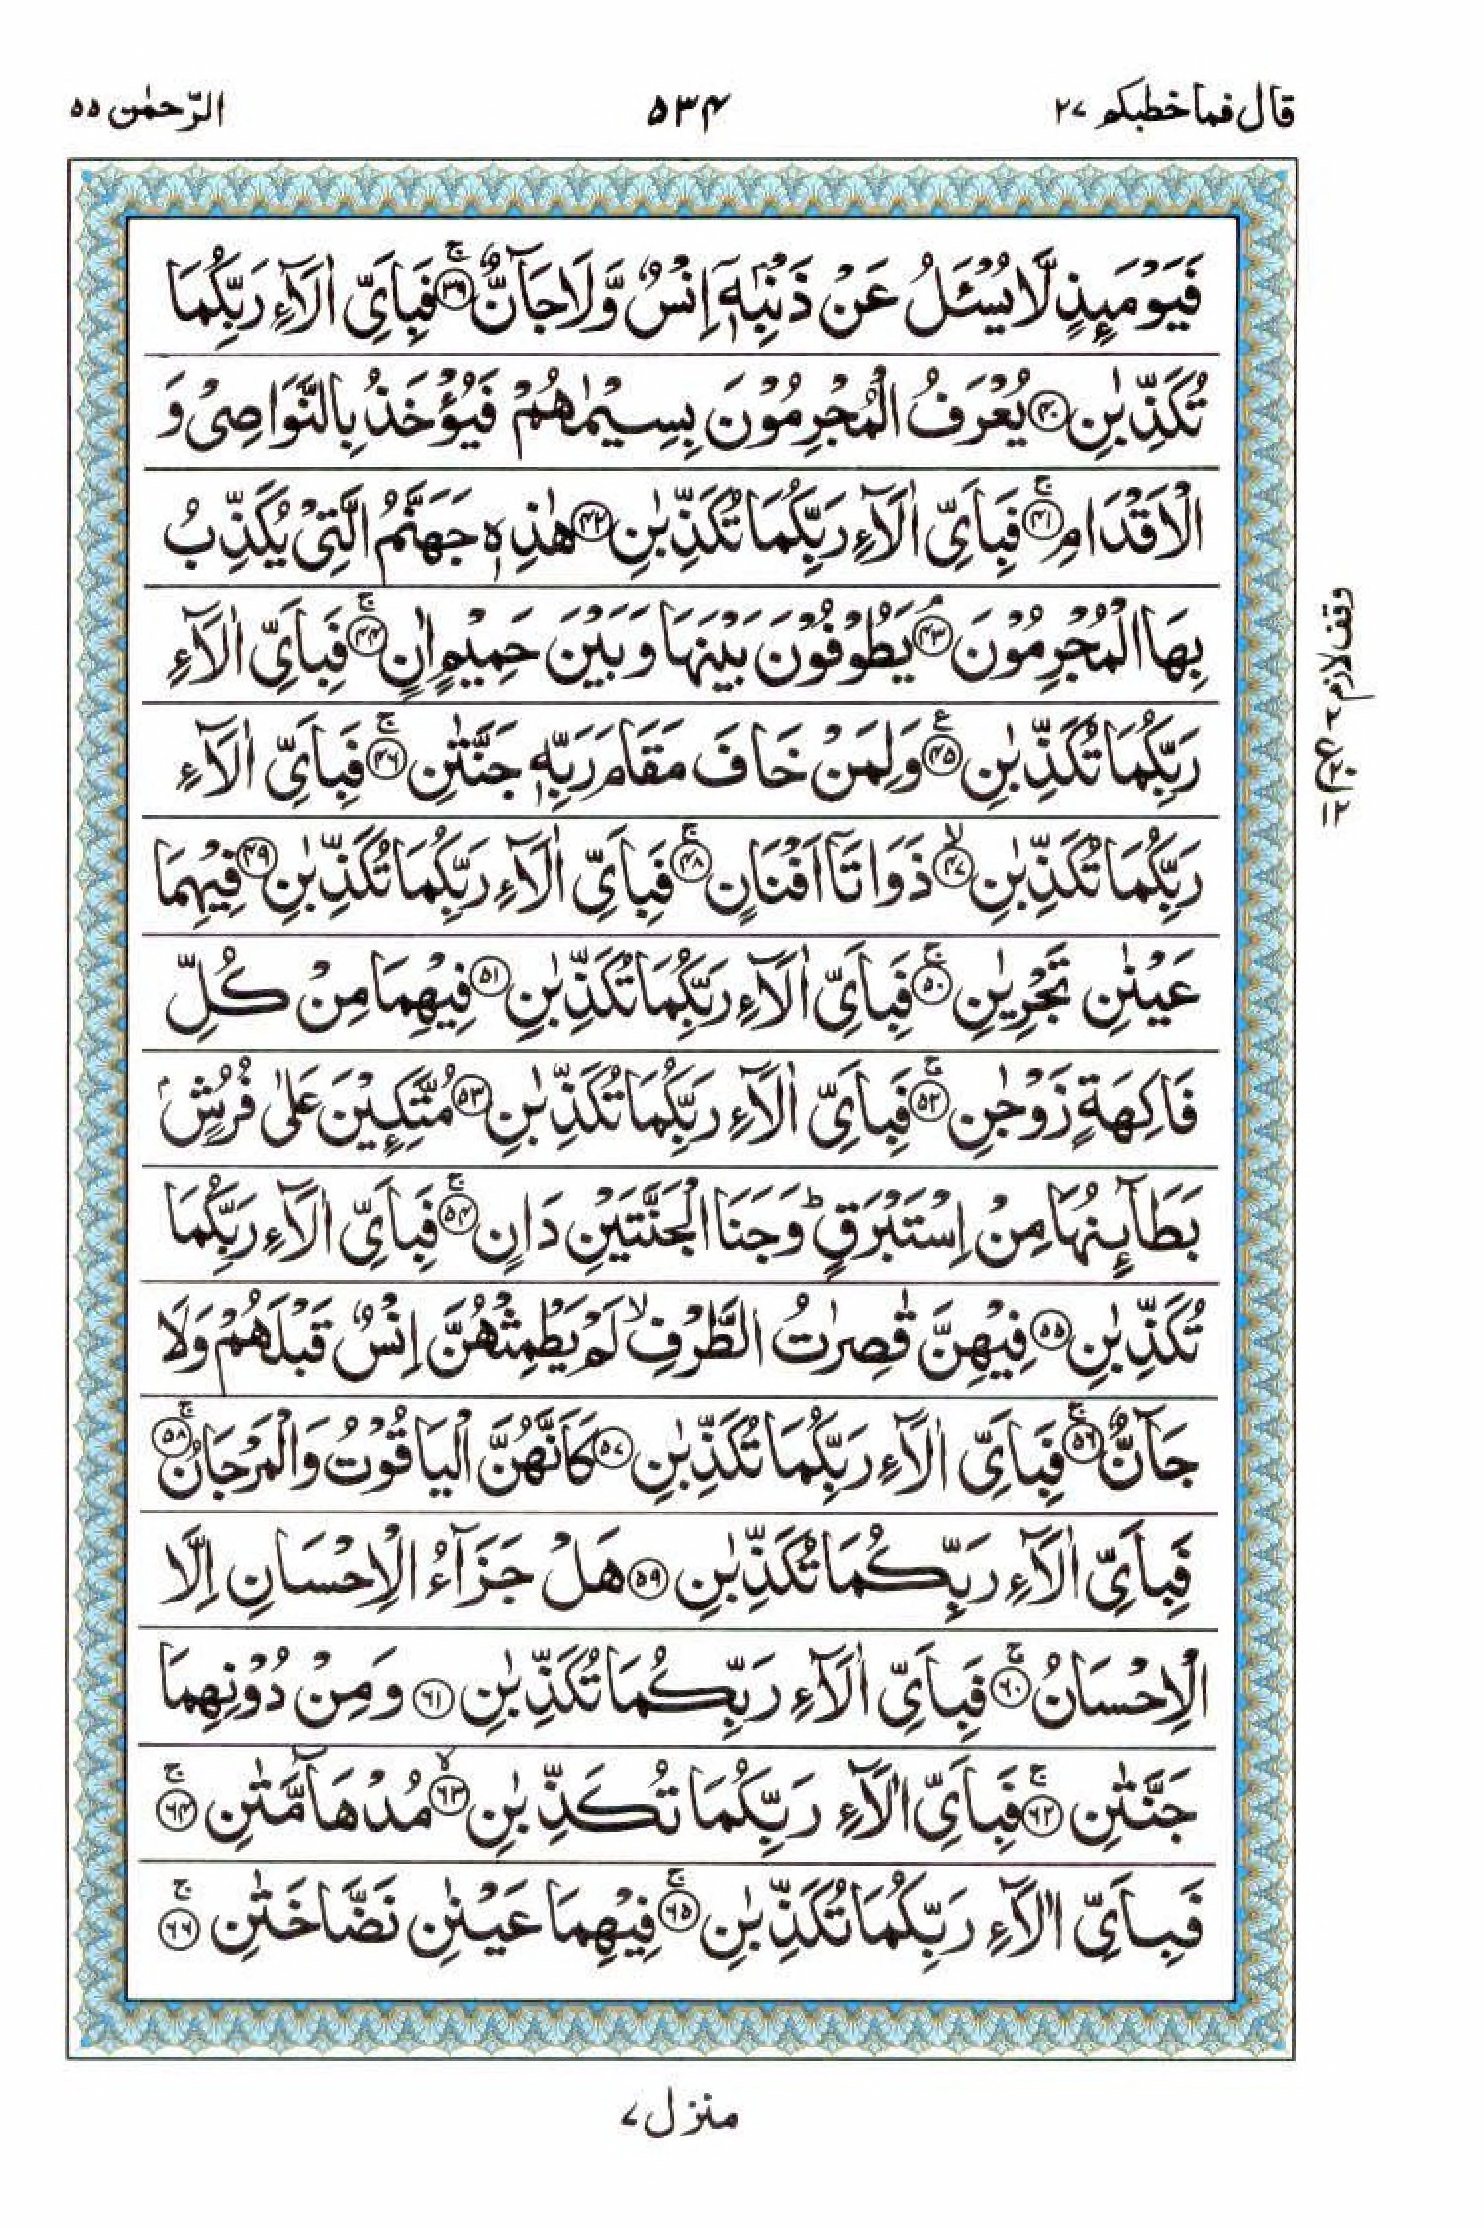 قال فما خطبکم ۲۷
۵۳۴
الرّحمٰن ۵۵
فَيَوْمَىِٕذٍ لَّا يُسْـَٔلُ عَنْ ذَنْۢبِهٖۤ اِنْسٌ وَّلَا جَآنٌّۚ۝۳۹ فَبِاَیِّ اٰلَآءِ رَبِّكُمَا
تُكَذِّبٰنِ۝۴۰ يُعْرَفُ الْمُجْرِمُوْنَ بِسِيْمٰهُمْ فَيُؤْخَذُ بِالنَّوَاصِیْ وَ
الْاَقْدَامِۚ۝۴۱ فَبِاَیِّ اٰلَآءِ رَبِّكُمَا تُكَذِّبٰنِ۝۴۲ هٰذِهٖ جَهَنَّمُ الَّتِیْ يُكَذِّبُ
بِهَا الْمُجْرِمُوْنَۘ۝۴۳ يَطُوْفُوْنَ بَيْنَهَا وَبَيْنَ حَمِيْمٍ اٰنٍۚ۝۴۴ فَبِاَیِّ اٰلَآءِ
رَبِّكُمَا تُكَذِّبٰنِ۝۴۵ع وَلِمَنْ خَافَ مَقَامَ رَبِّهٖ جَنَّتٰنِۚ۝۴۶ فَبِاَیِّ اٰلَآءِ
رَبِّكُمَا تُكَذِّبٰنِۙ۝۴۷ ذَوَاتَاۤ اَفْنَانٍۚ۝۴۸ فَبِاَیِّ اٰلَآءِ رَبِّكُمَا تُكَذِّبٰنِ۝۴۹ فِيْهِمَا
عَيْنٰنِ تَجْرِيٰنِۚ۝۵۰ فَبِاَیِّ اٰلَآءِ رَبِّكُمَا تُكَذِّبٰنِ۝۵۱ فِيْهِمَا مِنْ كُلِّ
فَاكِهَةٍ زَوْجٰنِۚ۝۵۲ فَبِاَیِّ اٰلَآءِ رَبِّكُمَا تُكَذِّبٰنِ۝۵۳ مُتَّكِـِٕيْنَ عَلٰى فُرُشٍۭ
بَطَآىِٕنُهَا مِنْ اِسْتَبْرَقٍؕ وَجَنَا الْجَنَّتَيْنِ دَانٍۚ۝۵۴ فَبِاَیِّ اٰلَآءِ رَبِّكُمَا
تُكَذِّبٰنِ۝۵۵ فِيْهِنَّ قٰصِرٰتُ الطَّرْفِۙ لَمْ يَطْمِثْهُنَّ اِنْسٌ قَبْلَهُمْ وَلَا
جَآنٌّۚ۝۵۶ فَبِاَیِّ اٰلَآءِ رَبِّكُمَا تُكَذِّبٰنِ۝۵۷ كَاَنَّهُنَّ الْيَاقُوْتُ وَالْمَرْجَانُۚ۝۵۸
فَبِاَیِّ اٰلَآءِ رَبِّكُمَا تُكَذِّبٰنِ۝۵۹ هَلْ جَزَآءُ الْاِحْسَانِ اِلَّا
الْاِحْسَانُۚ۝۶۰ فَبِاَیِّ اٰلَآءِ رَبِّكُمَا تُكَذِّبٰنِ۝۶۱ وَمِنْ دُوْنِهِمَا
جَنَّتٰنِۚ۝۶۲ فَبِاَیِّ اٰلَآءِ رَبِّكُمَا تُكَذِّبٰنِۙ۝۶۳ مُدْهَآمَّتٰنِۚ۝۶۴
فَبِاَیِّ اٰلَآءِ رَبِّكُمَا تُكَذِّبٰنِۚ۝۶۵ فِيْهِمَا عَيْنٰنِ نَضَّاخَتٰنِۚ۝۶۶
وقف لازم
منزل ۷